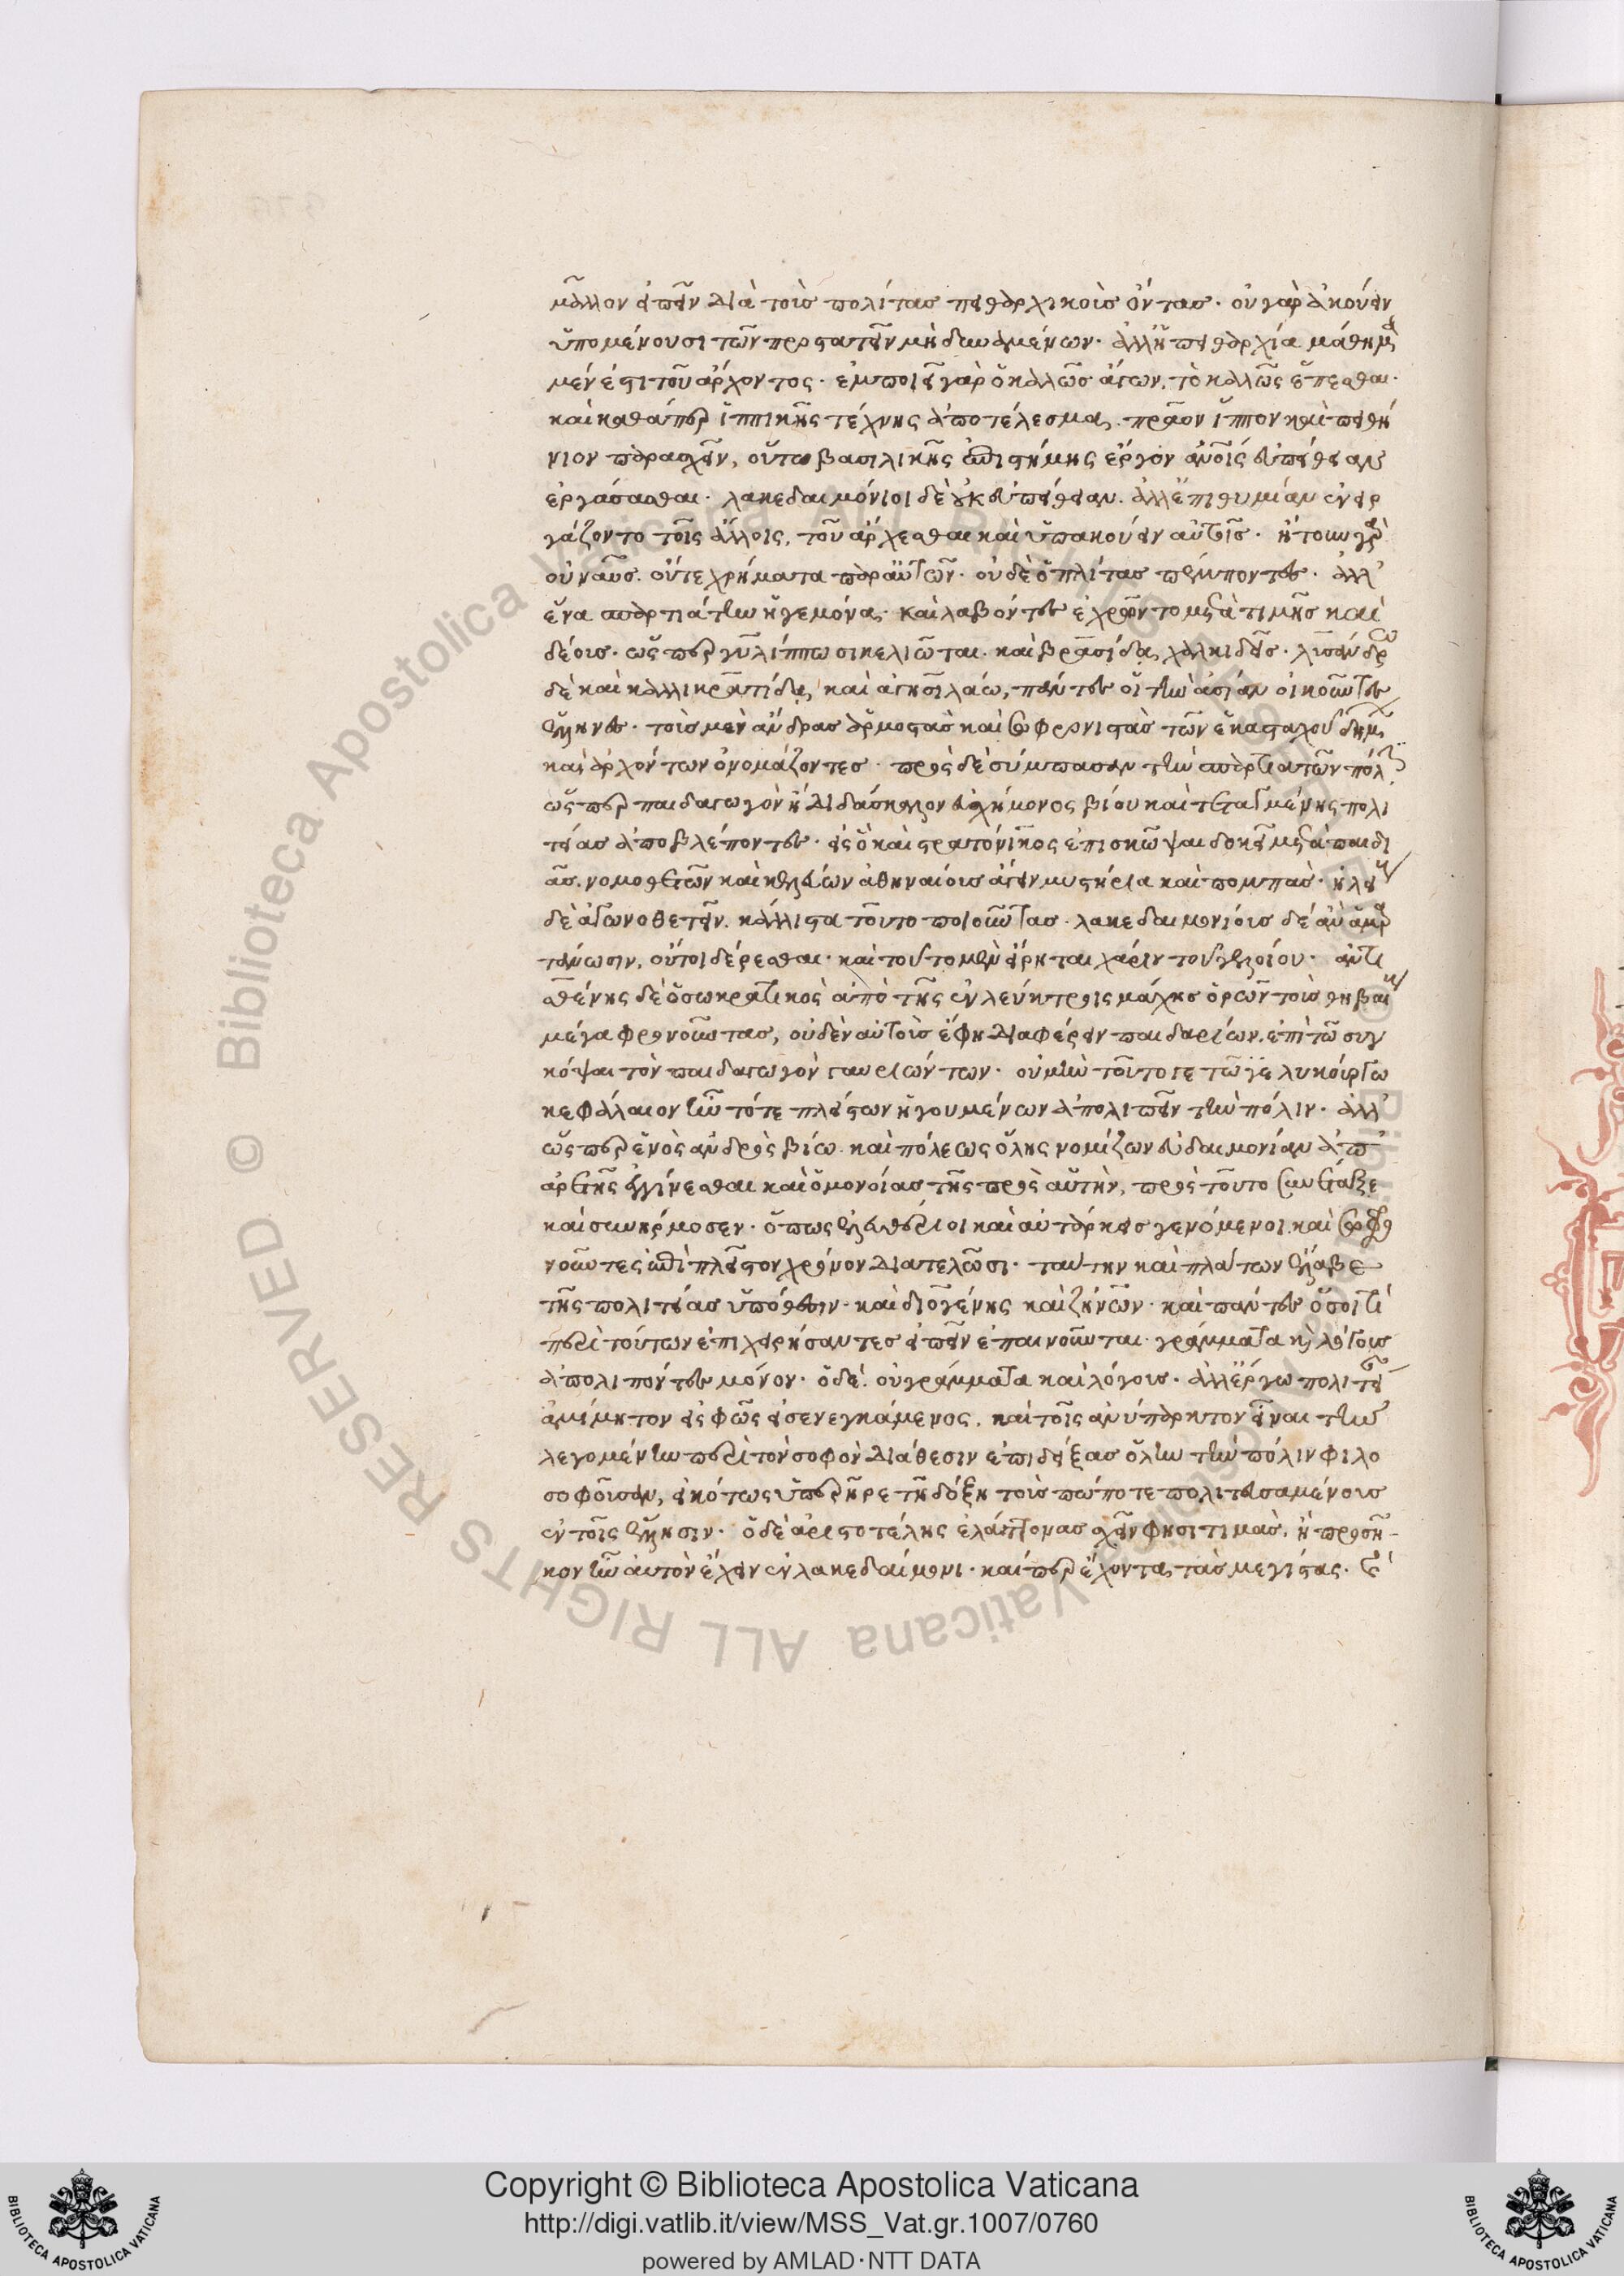 μᾶλλον εἰπεῖν διὰ τοὺς πολίτας πειθαρχικοὺς ὄντας· οὐ γὰρ ἀκούειν
ὑπομένουσι τῶν προστατεῖν μὴ δυναμένων· ἀλλ' ἡ πειθαρχία μάθημα
μέν ἐστι τοῦ ἄρχοντος· ἐμποιεῖ γὰρ ὁ καλῶς ἄγων, τὸ καλῶς ἕπεσθαι·
καὶ καθάπερ ἱππικῆς τέχνης ἀποτέλεσμα, πρᾶον ἵππον καὶ πειθή
νιον παρασχεῖν, οὕτω βασιλικῆς ἐπιστήμης ἔργον ἀνοῖς εὐπείθειαν
ἐργάσασθαι· λακεδαιμόνιοι δὲ οὐκ εὐπείθειαν. ἀλλ' ἐπιθυμίαν ἐνειρ
γάζοντο τοῖς ἄλλοις, τοῦ ἄρχεσθαι καὶ ὑπακούειν αὐτοῖς· ᾔτουν γὰρ
οὐ ναῦς. οὔτε χρήματα παρ' αὐτῶν· οὐδὲ ὁπλίτας πέμποντες· ἀλλ'
ἕνα σπαρτιάτην ἡγεμόνα· καὶ λαβόντες ἐχρῶντο μετὰ τιμῆς καὶ
δέους· ὥσπερ γυλίππω σικελιῶται· καὶ βρασίδα, χαλκιδεῖς· λυσάνδρω
δὲ καὶ καλλικρατίδα, καὶ ἀγησιλάω, πάντες οἱ τὴν ἀσίαν οἰκοῦντες
ἕλληνες· τοὺς μὲν ἄνδρας ἁρμοστὰς καὶ σωφρονιστὰς τῶν ἑκασταχοῦ δήμων
καὶ ἀρχόντων ὀνομάζοντες· πρὸς δὲ σύμπασαν τὴν σπαρτιατῶν πόλιν
ὥσπερ παιδαγωγὸν ἢ διδάσκαλον εὐσχήμονος βίου καὶ τεταγμένης πολι
τείας ἀποβλέποντες· εἰς ὃ καὶ στρατόνικος ἐπισκῶψαι δοκεῖ μετὰ παιδι
ᾶς. νομοθετῶν καὶ κελεύων ἀθηναίους ἄγειν μυστήρια καὶ πομπὰς· ἠλείους
δὲ ἀγωνοθετεῖν. κάλλιστα τοῦτο ποιοῦντας· λακεδαιμονίους δέ ἂν ἁμαρ
τάνωσιν, οὗτοι δέρεσθαι· καὶ τοῦτο μὲν εἴρηται χάριν τοῦ γελοίου· ἀντι
σθένης δὲ ὁ σωκρατικὸς ἀπὸ τῆς ἐν λεύκτροις μάχης ὁρῶν τοὺς θηβαίους
μέγα φρονοῦντας, οὐδὲν αὐτοὺς ἔφη διαφέρειν παιδαρίων. ἐπὶ τῶ συγ
κόψαι τὸν παιδαγωγὸν γαυριώντων· οὐ μὴν τοῦτό γε τῶ γε λυκούργω
κεφάλαιον ἦν τότε πλείστων ἡγουμένων ἀπολιπεῖν τὴν πόλιν· ἀλλ'
ὥσπερ ἑνὸς ἀνδρὸς βίω. καὶ πόλεως ὅλης νομίζων εὐδαιμονίαν ἀπ'
ἀρετῆς ἐγγίνεσθαι καὶ ὁμονοίας τῆς πρὸς αὐτὴν, πρὸς τοῦτο συνέταξε
καὶ συνήρμοσεν· ὅπως ἐλευθέριοι καὶ αὐτάρκεις γενόμενοι. καὶ σωφρο
νοῦντες ἐπὶ πλεῖστον χρόνον διατελῶσι· ταύτην καὶ πλάτων ἔλαβε
τῆς πολιτείας ὑπόθεσιν· καὶ διογένης καὶ ζήνων· καὶ πάντες ὅσοι τι
περὶ τούτων ἐπιχειρήσαντες εἰπεῖν ἐπαινοῦνται· γράμματα καὶ λόγους
ἀπολιπόντες μόνον· ὁ δὲ. οὐ γράμματα καὶ λόγους· ἀλλ' ἔργω πολιτείαν
ἀμίμητον εἰς φῶς εἰσενεγκάμενος. καὶ τοῖς ἀνύπαρκτον εἶναι τὴν
λεγομένην περὶ τὸν σοφὸν διάθεσιν ἐπιδείξας ὅλην τὴν πόλιν φιλο
σοφοῦσαν, εἰκότως ὑπερῆρε τῆ δόξη τοὺς πώποτε πολιτευσαμένους
ἐν τοῖς ἕλλησιν· ὁ δὲ ἀριστοτέλης ἐλάττονας σχεῖν φησι τιμὰς. ἢ προσῆ-
κον ἦν αὐτὸν ἔχειν ἐν λακεδαίμονι· καίπερ ἔχοντα τὰς μεγίστας.
Copyright © Biblioteca Apostolica Vaticana
http://digi.vatlib.it/view/MSS_Vat.gr.1007/0760
powered by AMLAD·NTT DATA
© Biblioteca Apostolica Vaticana ALL RIGHTS RESERVED
BIBLIOTECA APOSTOLICA VATICANA
BIBLIOTECA APOSTOLICA VATICANA